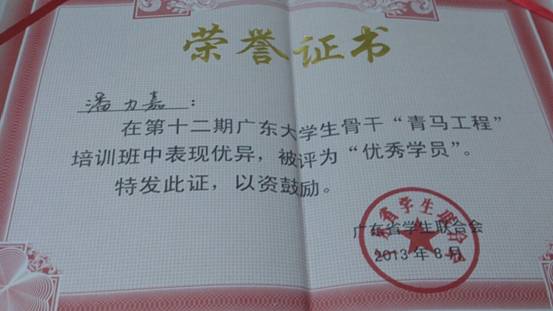 荣誉证书
潘力嘉：
在第十二期广东大学生骨干“青马工程”
培训班中表现优异，被评为“优秀学员”。
特发此证，以资鼓励。
广东省学生联合会
2013年8月